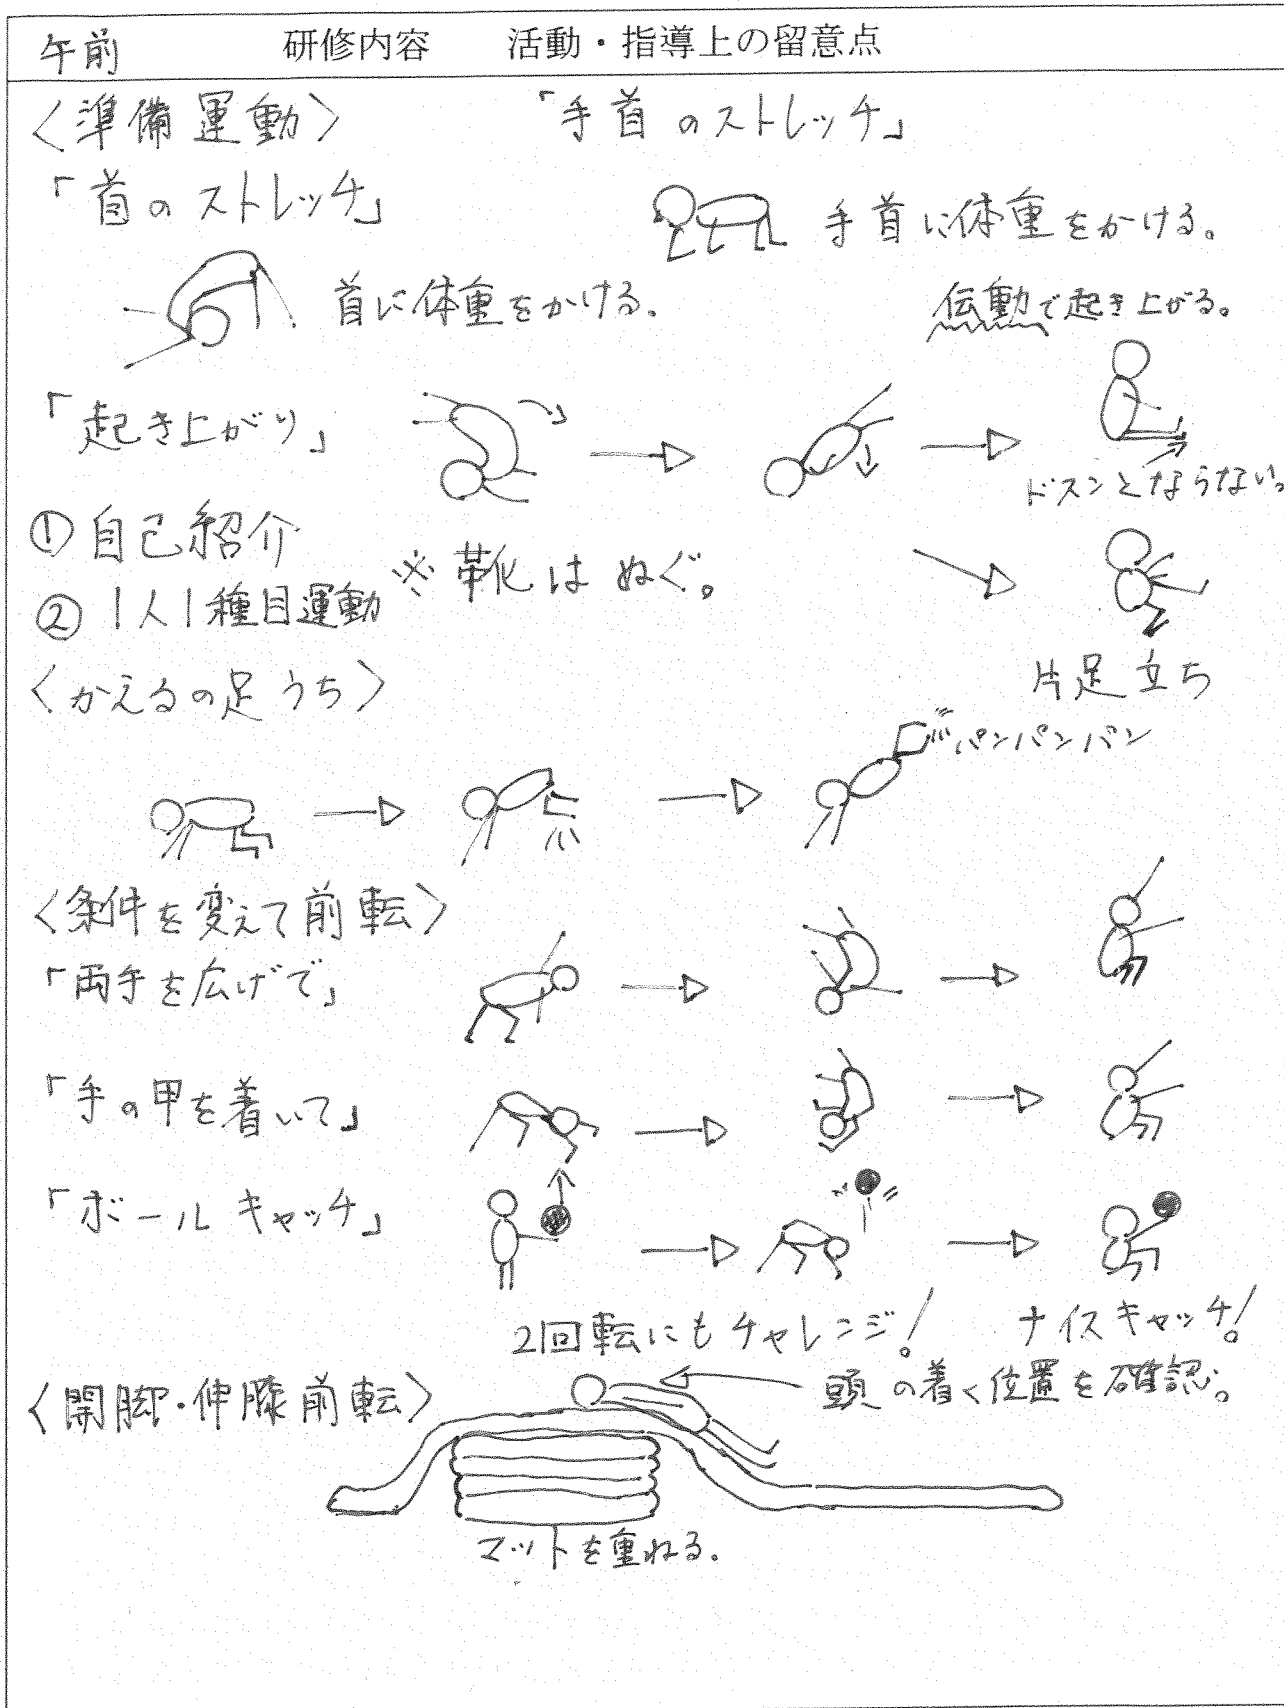 午前 研修内容 活動・指導上の留意点
〈準備運動〉 「手首のストレッチ」
「首のストレッチ」
手首に体重をかける。
首に体重をかける。
伝動で起き上がる。
「起き上がり」
ドスンとならない。
① 自己紹介
※靴はぬぐ。
② 1人1種目運動
片足立ち
〈かえるの足うち〉
パンパンパン
〈条件を変えて前転〉
「両手を広げで」
「手の甲を着いて」
「ボールキャッチ」
2回転にもチャレンジ! ナイスキャッチ!
〈開脚・伸膝前転〉
頭の着く位置を確認。
マットを重ねる。